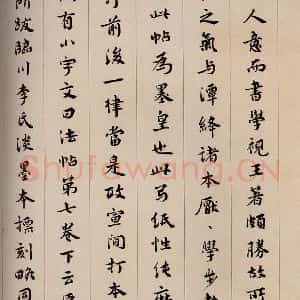 人意而书学视王著頗勝故所
之氣与潭絳諸本厫、學步
此帖為墨皇也此写紙性純
前後一律當是政宣间打本
有小字文曰法帖第七卷下云
所跋臨川李氏淡墨本摽刻略同
Shufawang.CN